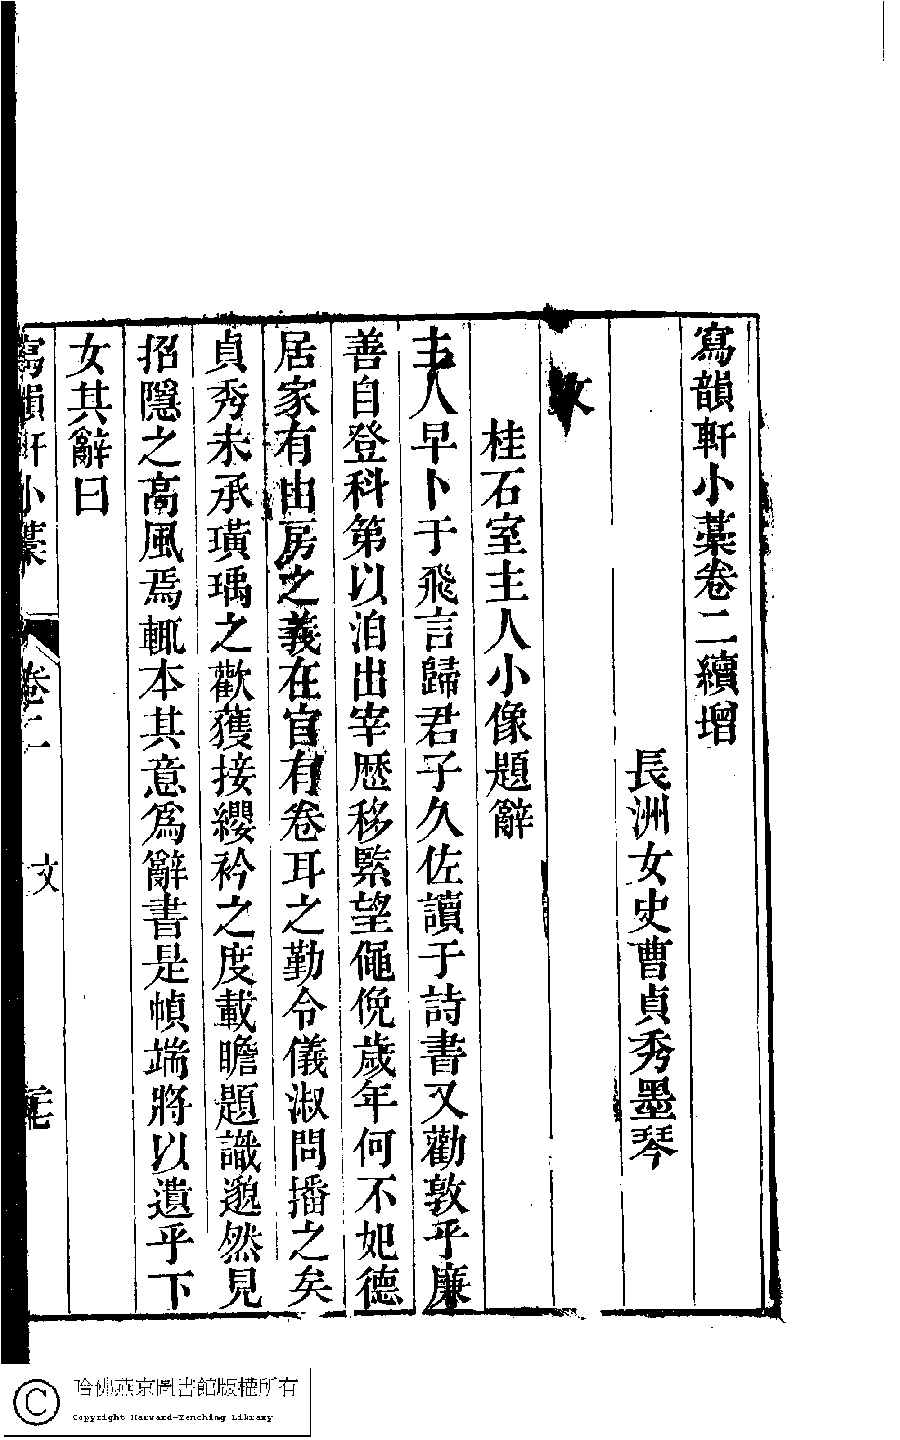 寫韻軒小藁卷二續增
長洲女史曹貞秀墨琴
文
桂石室主人小像題辭
主人早卜于飛言歸君子久佐讀于詩書又勸敦乎廉
善自登科第以洎出宰歷移緊望僶俛歲年何不妃德
居家有由房之義在官有卷耳之勤令儀淑問播之矣
貞秀未承璜瑀之歡獲接纓衿之度載瞻題識邈然見
招隱之高風焉輒本其意為辭書是幀端將以遺乎下
女其辭曰
寫韻軒小藁
卷二
文
哈佛燕京圖書館版權所有
Copyright Harvard-Yenching Library